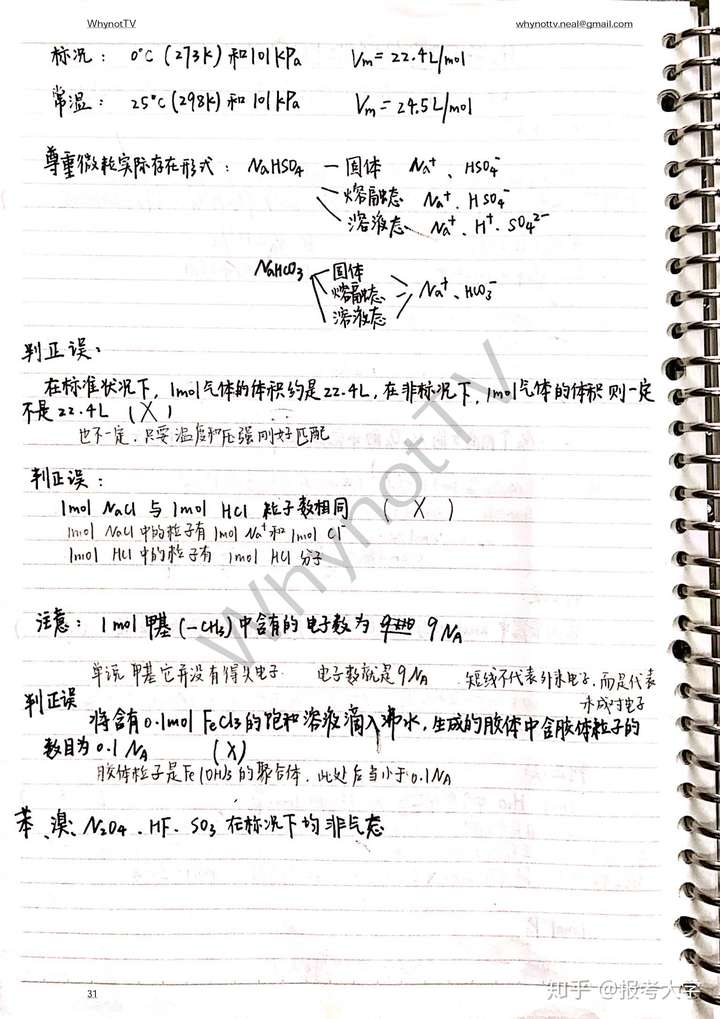 WhynotTV
whynottv.neal@gmail.com
标况： 0°C (273K) 和 101 kPa Vm = 22.4 L/mol
常温： 25°C (298K) 和 101 kPa Vm = 24.5 L/mol
尊重微粒实际存在形式： NaHSO4 — 固体 Na⁺、HSO4⁻
熔融态 Na⁺、HSO4⁻
溶液态 Na⁺、H⁺、SO4²⁻
NaHCO3 固体
熔融态 Na⁺、HCO3⁻
溶液态
判正误：
在标准状况下，1mol气体的体积约是22.4L，在非标况下，1mol气体的体积则一定
不是22.4L (X)
也不一定，只要温度和压强刚好匹配
判正误：
1mol NaCl 与 1mol HCl 粒子数相同 ( X )
1mol NaCl 中的粒子有 1mol Na⁺和 1mol Cl⁻
1mol HCl 中的粒子有 1mol HCl 分子
WhynotTV
注意： 1mol 甲基 (—CH3) 中含有的电子数为 9NA
单说甲基它并没有得失电子. 电子数就是9NA 短线不代表外来电子，而是代表
未成对电子
判正误
将含有0.1mol FeCl3的饱和溶液滴入沸水，生成的胶体中含胶体粒子的
数目为0.1NA (X)
胶体粒子是Fe(OH)3的聚合体，此处应当小于0.1NA
苯、溴、N2O4、HF、SO3 在标况下均非气态
31
知乎 @报考大学